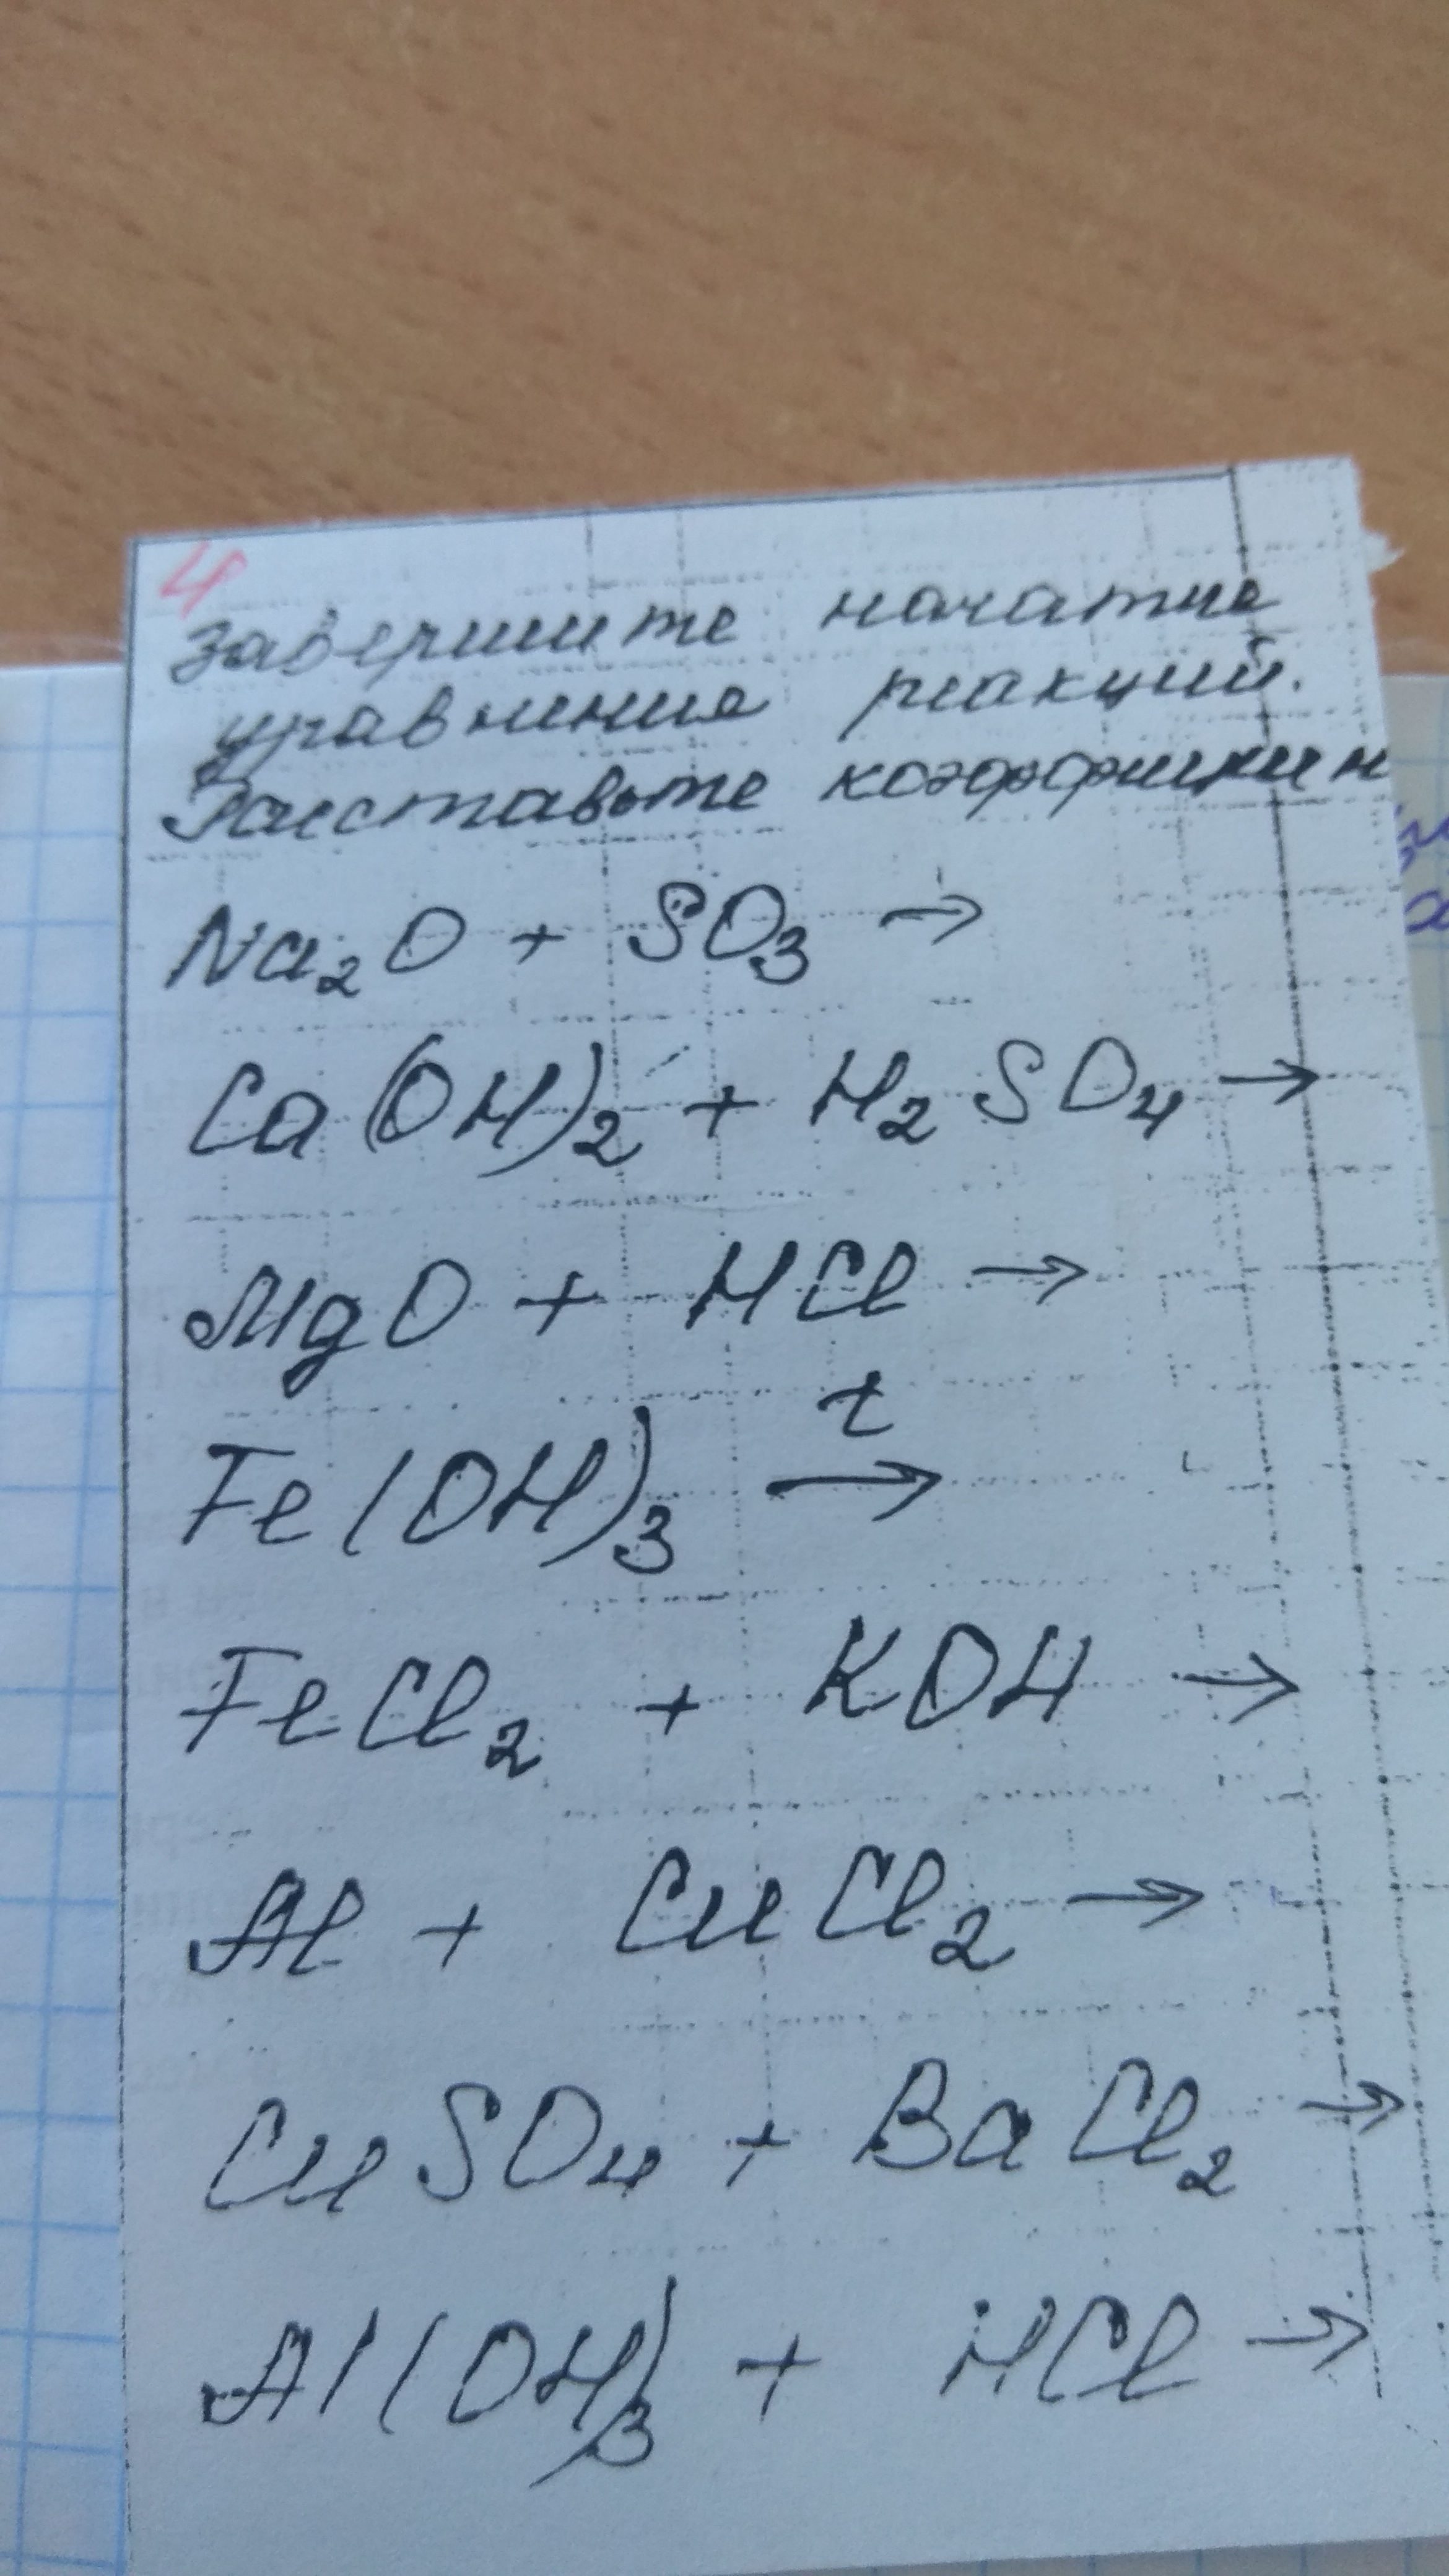 4
Завершите начатые
уравнения реакций.
Расставьте коэффициен
Na₂O + SO₃ →
Ca(OH)₂ + H₂SO₄ →
MgO + HCl →
t
Fe(OH)₃ →
FeCl₂ + KOH →
Al + CuCl₂ →
CuSO₄ + BaCl₂ →
Al(OH)₃ + HCl →